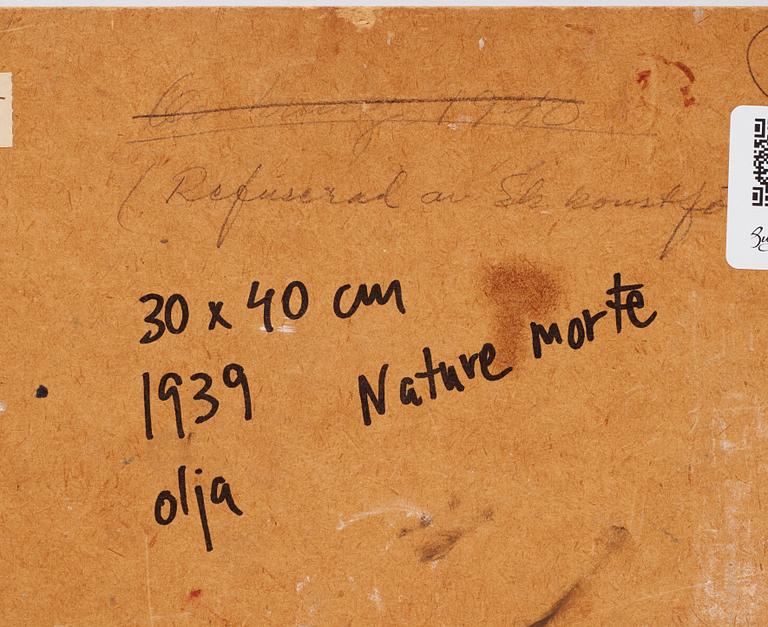 1940
(Refuserad av Sk konstfö
30 x 40 cm
1939
Nature morte
olja